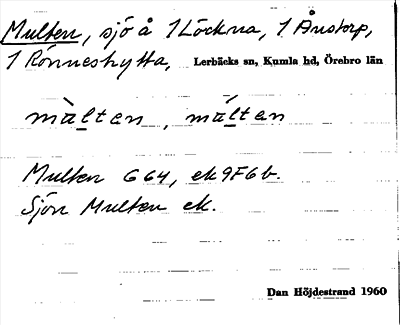 Multen, sjö å 1 Löckna, 1 Ånstorp,
1 Rönneshytta, Lerbäcks sn, Kumla hd, Örebro län
mùlten, múlten
Multen G 64, ek 9F6b.
Sjön Multen ek.
Dan Höjdestrand 1960